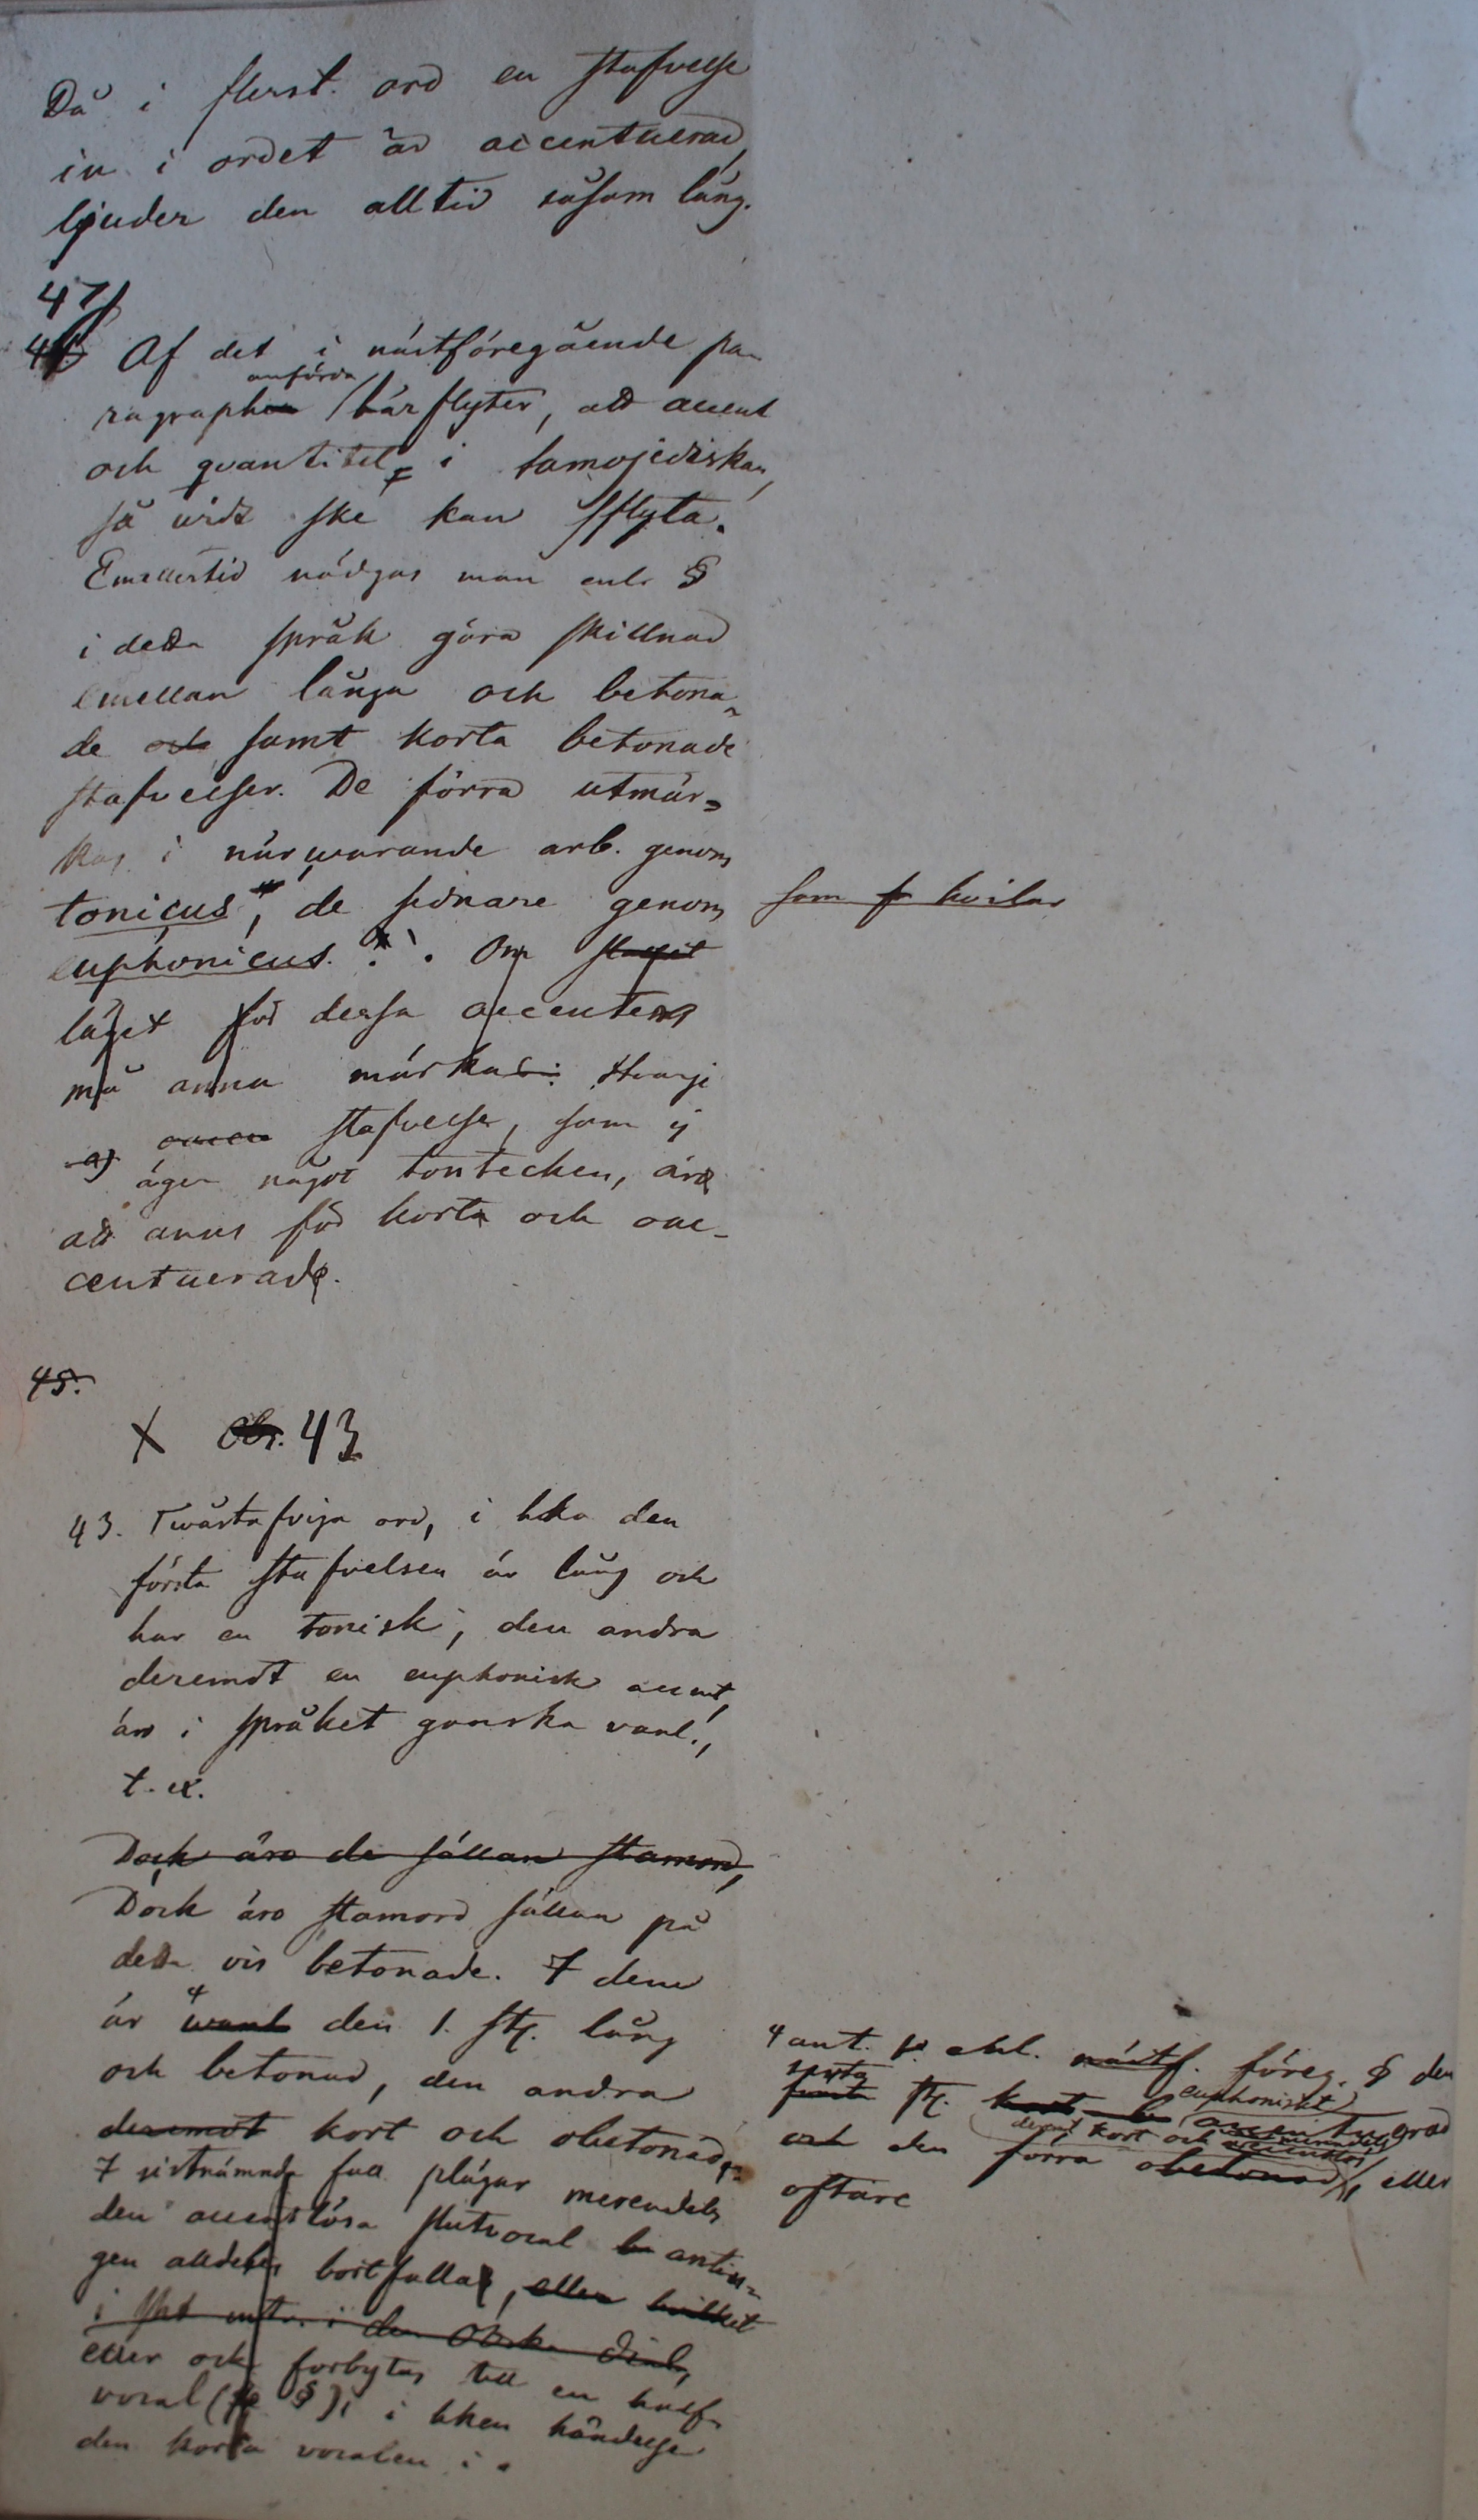 Då i flerst. ord en stafvelse
in i ordet är accentuerad,
ljuder den alltid såsom lång.
47
Af det i nästföregående pa-
anförda
ragraphen härflyter, att accent
och qvantitet i Samojediskan,
så vidt ske kan
Emellertid nödgas man enl. §
i detta språk göra skillnad
emellan långa och betona-
de och samt korta betonade
stafvelser. De förra utmär-
kas i närwarande arb. genom
tonicus ´, de sednare genom
euphonicus `. Om
läget för dessa accenter
må anna märkas: Hvarje
a) stafvelse, som ej
äger något tontecken, är
att anses för kort och oac-
centuerad.
som hvilar
45.
X Obs. 43
43. Twåstafviga ord, i hka den
första stafvelsen är lång och
har en tonisk, den andra
deremot en euphonisk accent,
äro i språket ganska vanl.,
t. ex.
Dock äro de sällan stamord,
Dock äro stamord sällan på
detta vis betonade. I dem
är vanl den 1. stf. lång
och betonad, den andra
deremot kort och obetonad.
I sistnämnda fall plägar merendels
den accentlösa slutvocal antin-
gen alldeles bortfalla, eller hvilket
i den Obska dial,
eller ock förbytas till en half-
vocal (§), i hken händelse
den korta vocalen i.
ant. enl. nästf. föreg. § den
sista
första stf. euphoniskt accentuerad
deremot kort och
och den förra obetonad, eller
oftare